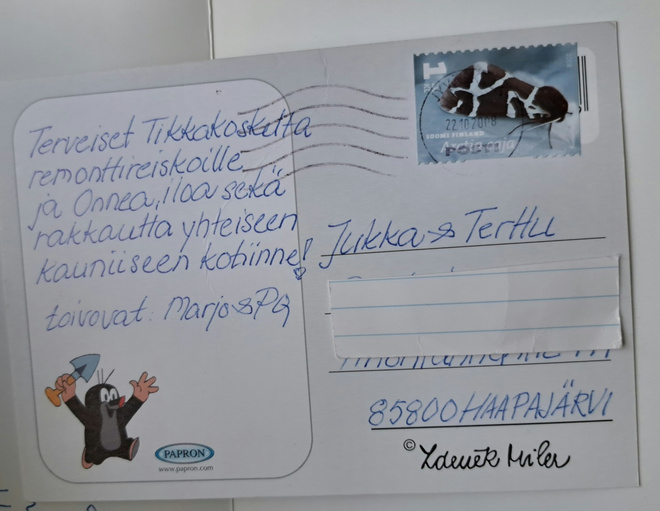 Terveiset Tikkakoskelta
remonttireiskoille
ja Onnea, iloa sekä
rakkautta yhteiseen
kauniiseen kotiinne!
toivovat: Marjo & PQ
PAPRON
www.papron.com
1
22.10.2008
SUOMI FINLAND
Arctia caja
Jukka & Terttu
85800 HAAPAJÄRVI
© Zdeněk Miler